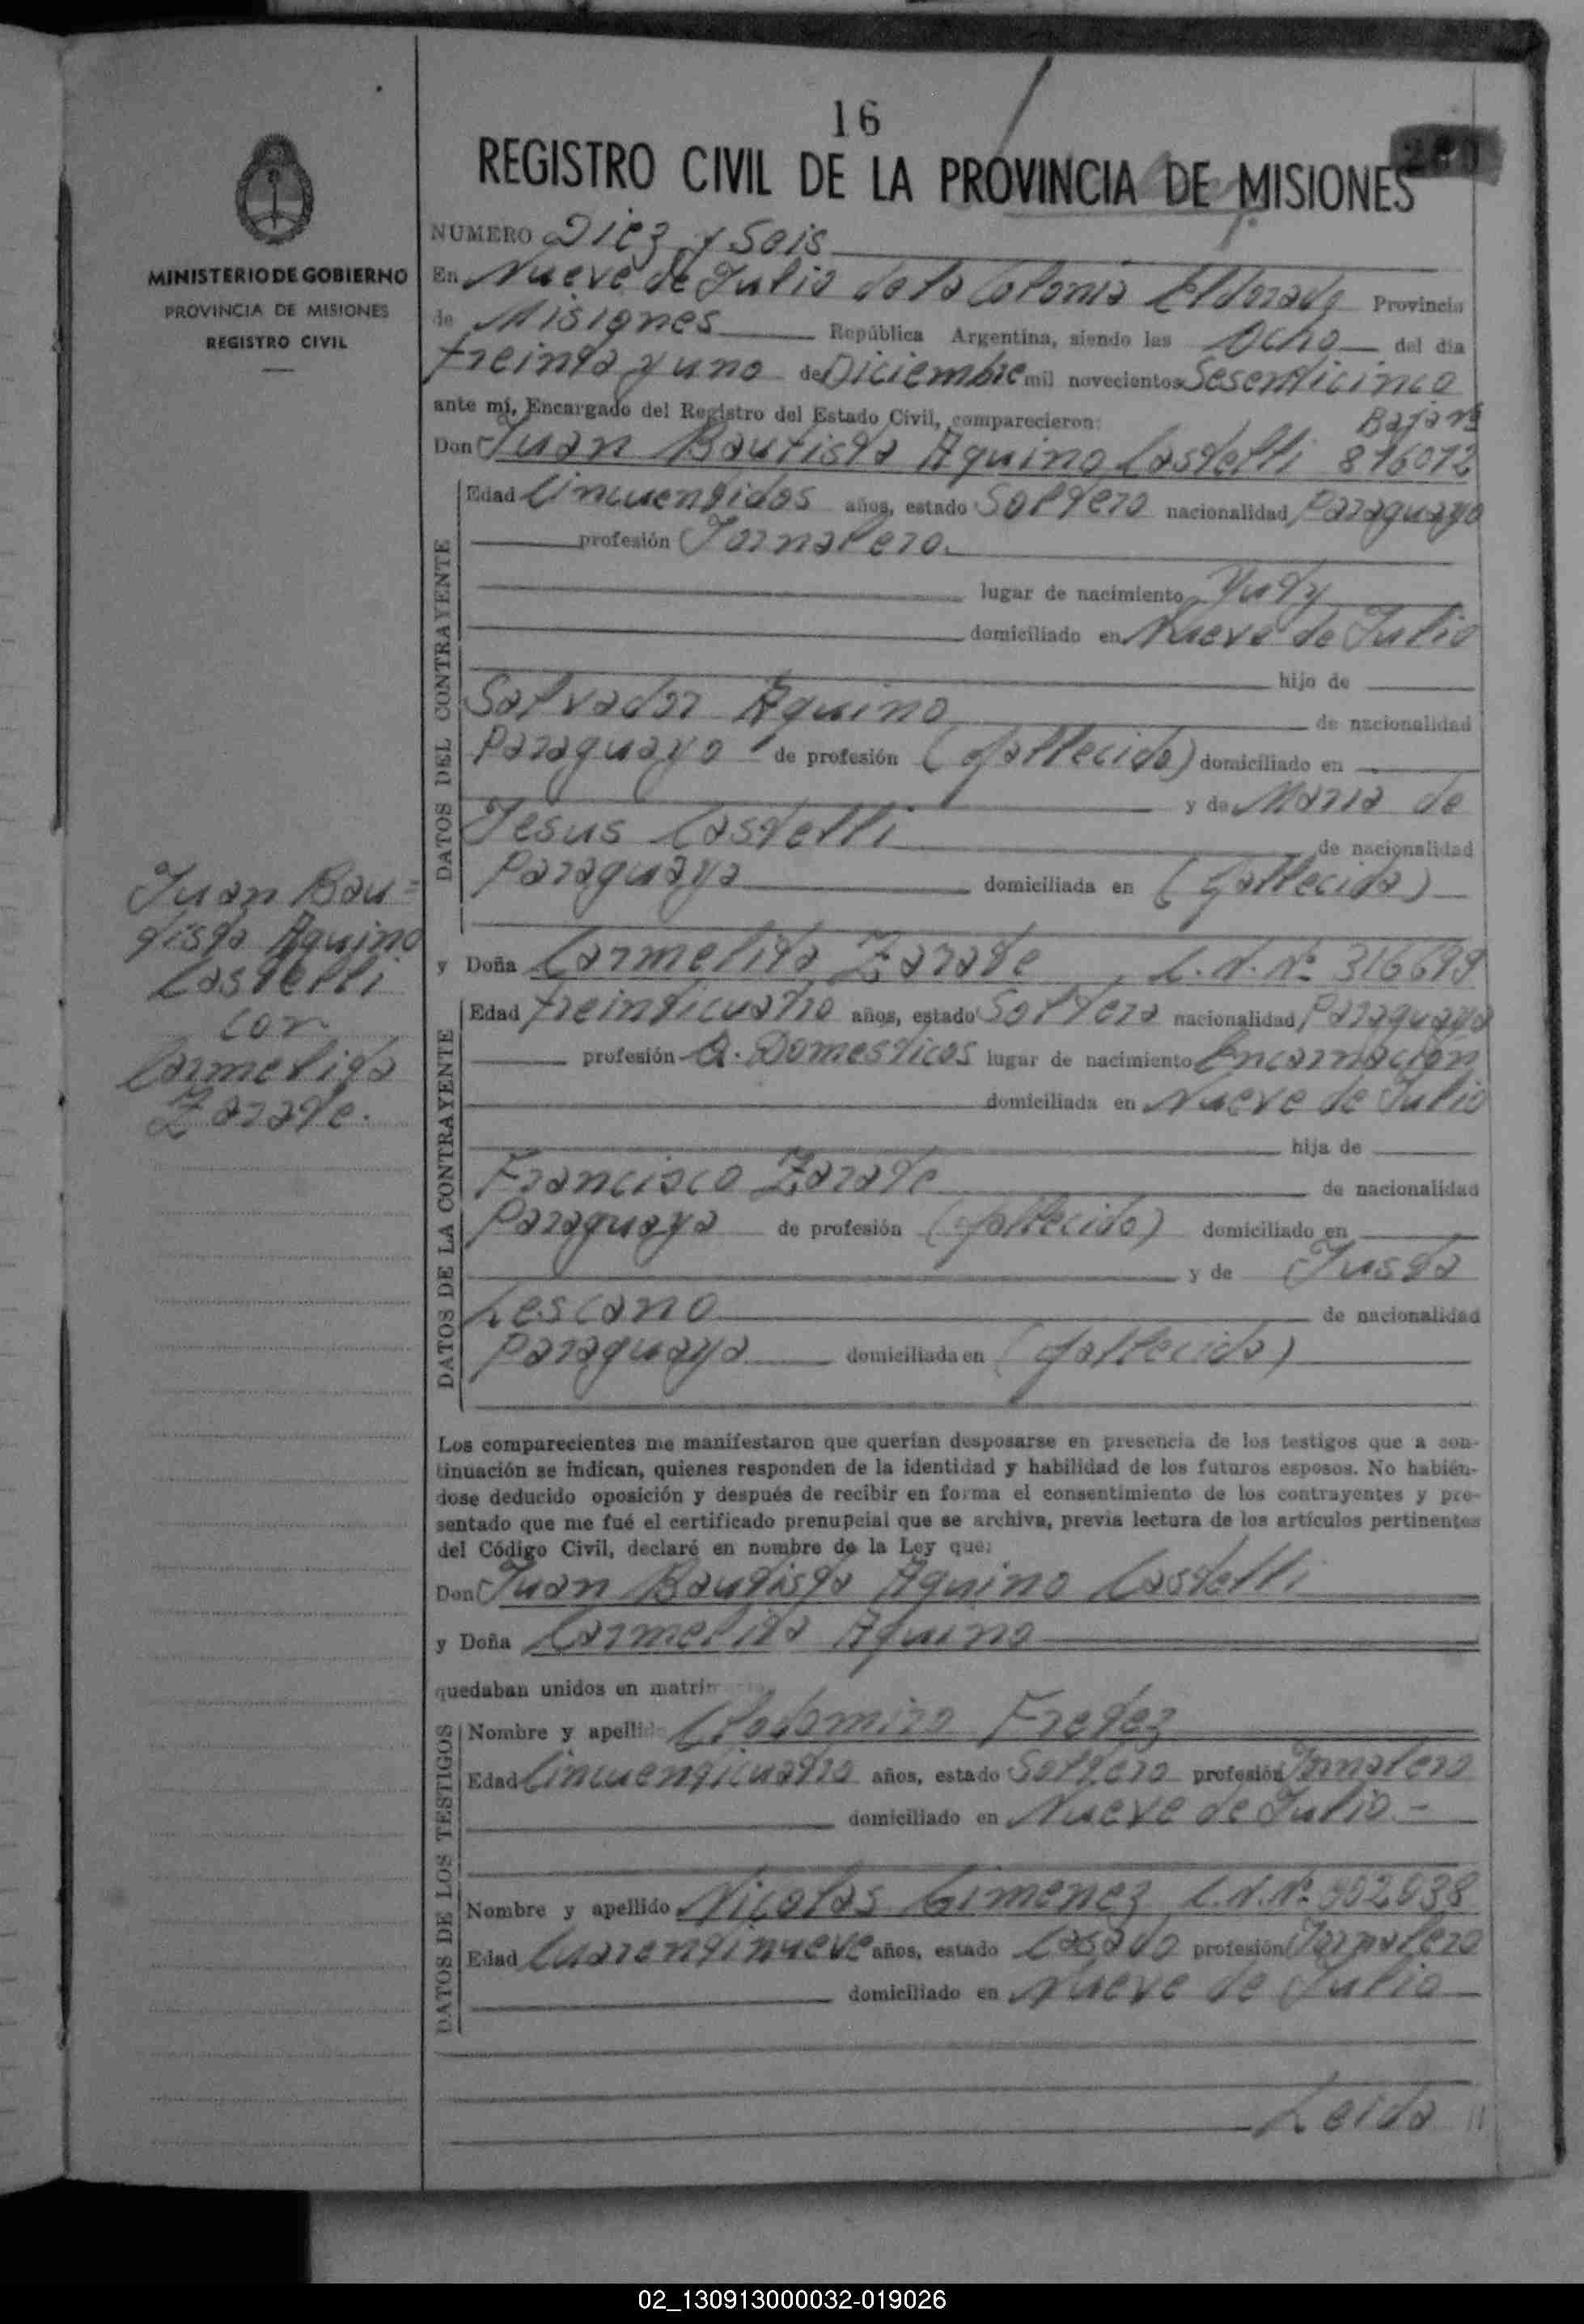 16
REGISTRO CIVIL DE LA PROVINCIA DE MISIONES
MINISTERIO DE GOBIERNO
PROVINCIA DE MISIONES
REGISTRO CIVIL
NUMERO Diez y Seis
En Nueve de Julio de la Colonia Eldorado Provincia
de Misiones República Argentina, siendo las Ocho del día
treinta y uno de Diciembre mil novecientos Sesenticinco
ante mí, Encargado del Registro del Estado Civil, comparecieron: Bajo Nº
Don Juan Bautista Aquino Castelli 876072
DATOS DEL CONTRAYENTE
Edad Cincuentidos años, estado Soltero nacionalidad Paraguayo
profesión Jornalero.
lugar de nacimiento Yuty
domiciliado en Nueve de Julio
hijo de
Salvador Aquino de nacionalidad
Paraguayo de profesión (fallecido) domiciliado en
y de Maria de
Jesus Castelli de nacionalidad
Paraguaya domiciliada en (fallecida)
Juan Bau=
tista Aquino
Castelli
con
Carmelita
Zarate.
y Doña Carmelita Zarate, C.N.Nº 316699
DATOS DE LA CONTRAYENTE
Edad treinticuatro años, estado Soltera nacionalidad Paraguaya
profesión Q. Domesticos lugar de nacimiento Encarnación
domiciliada en Nueve de Julio
hija de
Francisco Zarate de nacionalidad
Paraguaya de profesión (fallecido) domiciliado en
y de Justa
Lescano de nacionalidad
Paraguaya domiciliada en (fallecida)
Los comparecientes me manifestaron que querían desposarse en presencia de los testigos que a con-
tinuación se indican, quienes responden de la identidad y habilidad de los futuros esposos. No habién-
dose deducido oposición y después de recibir en forma el consentimiento de los contrayentes y pre-
sentado que me fué el certificado prenupcial que se archiva, previa lectura de los artículos pertinentes
del Código Civil, declaré en nombre de la Ley que:
Don Juan Bautista Aquino Castelli
y Doña Carmelita Aquino
quedaban unidos en matrim
DATOS DE LOS TESTIGOS
Nombre y apellido Clodomiro Fretez
Edad Cincuenticuatro años, estado Soltero profesión Jornalero
domiciliado en Nueve de Julio.-
Nombre y apellido Nicolas Gimenez C.N.Nº 902038
Edad Cuarentinueve años, estado Casado profesión Jornalero
domiciliado en Nueve de Julio
Leida //
02_130913000032-019026